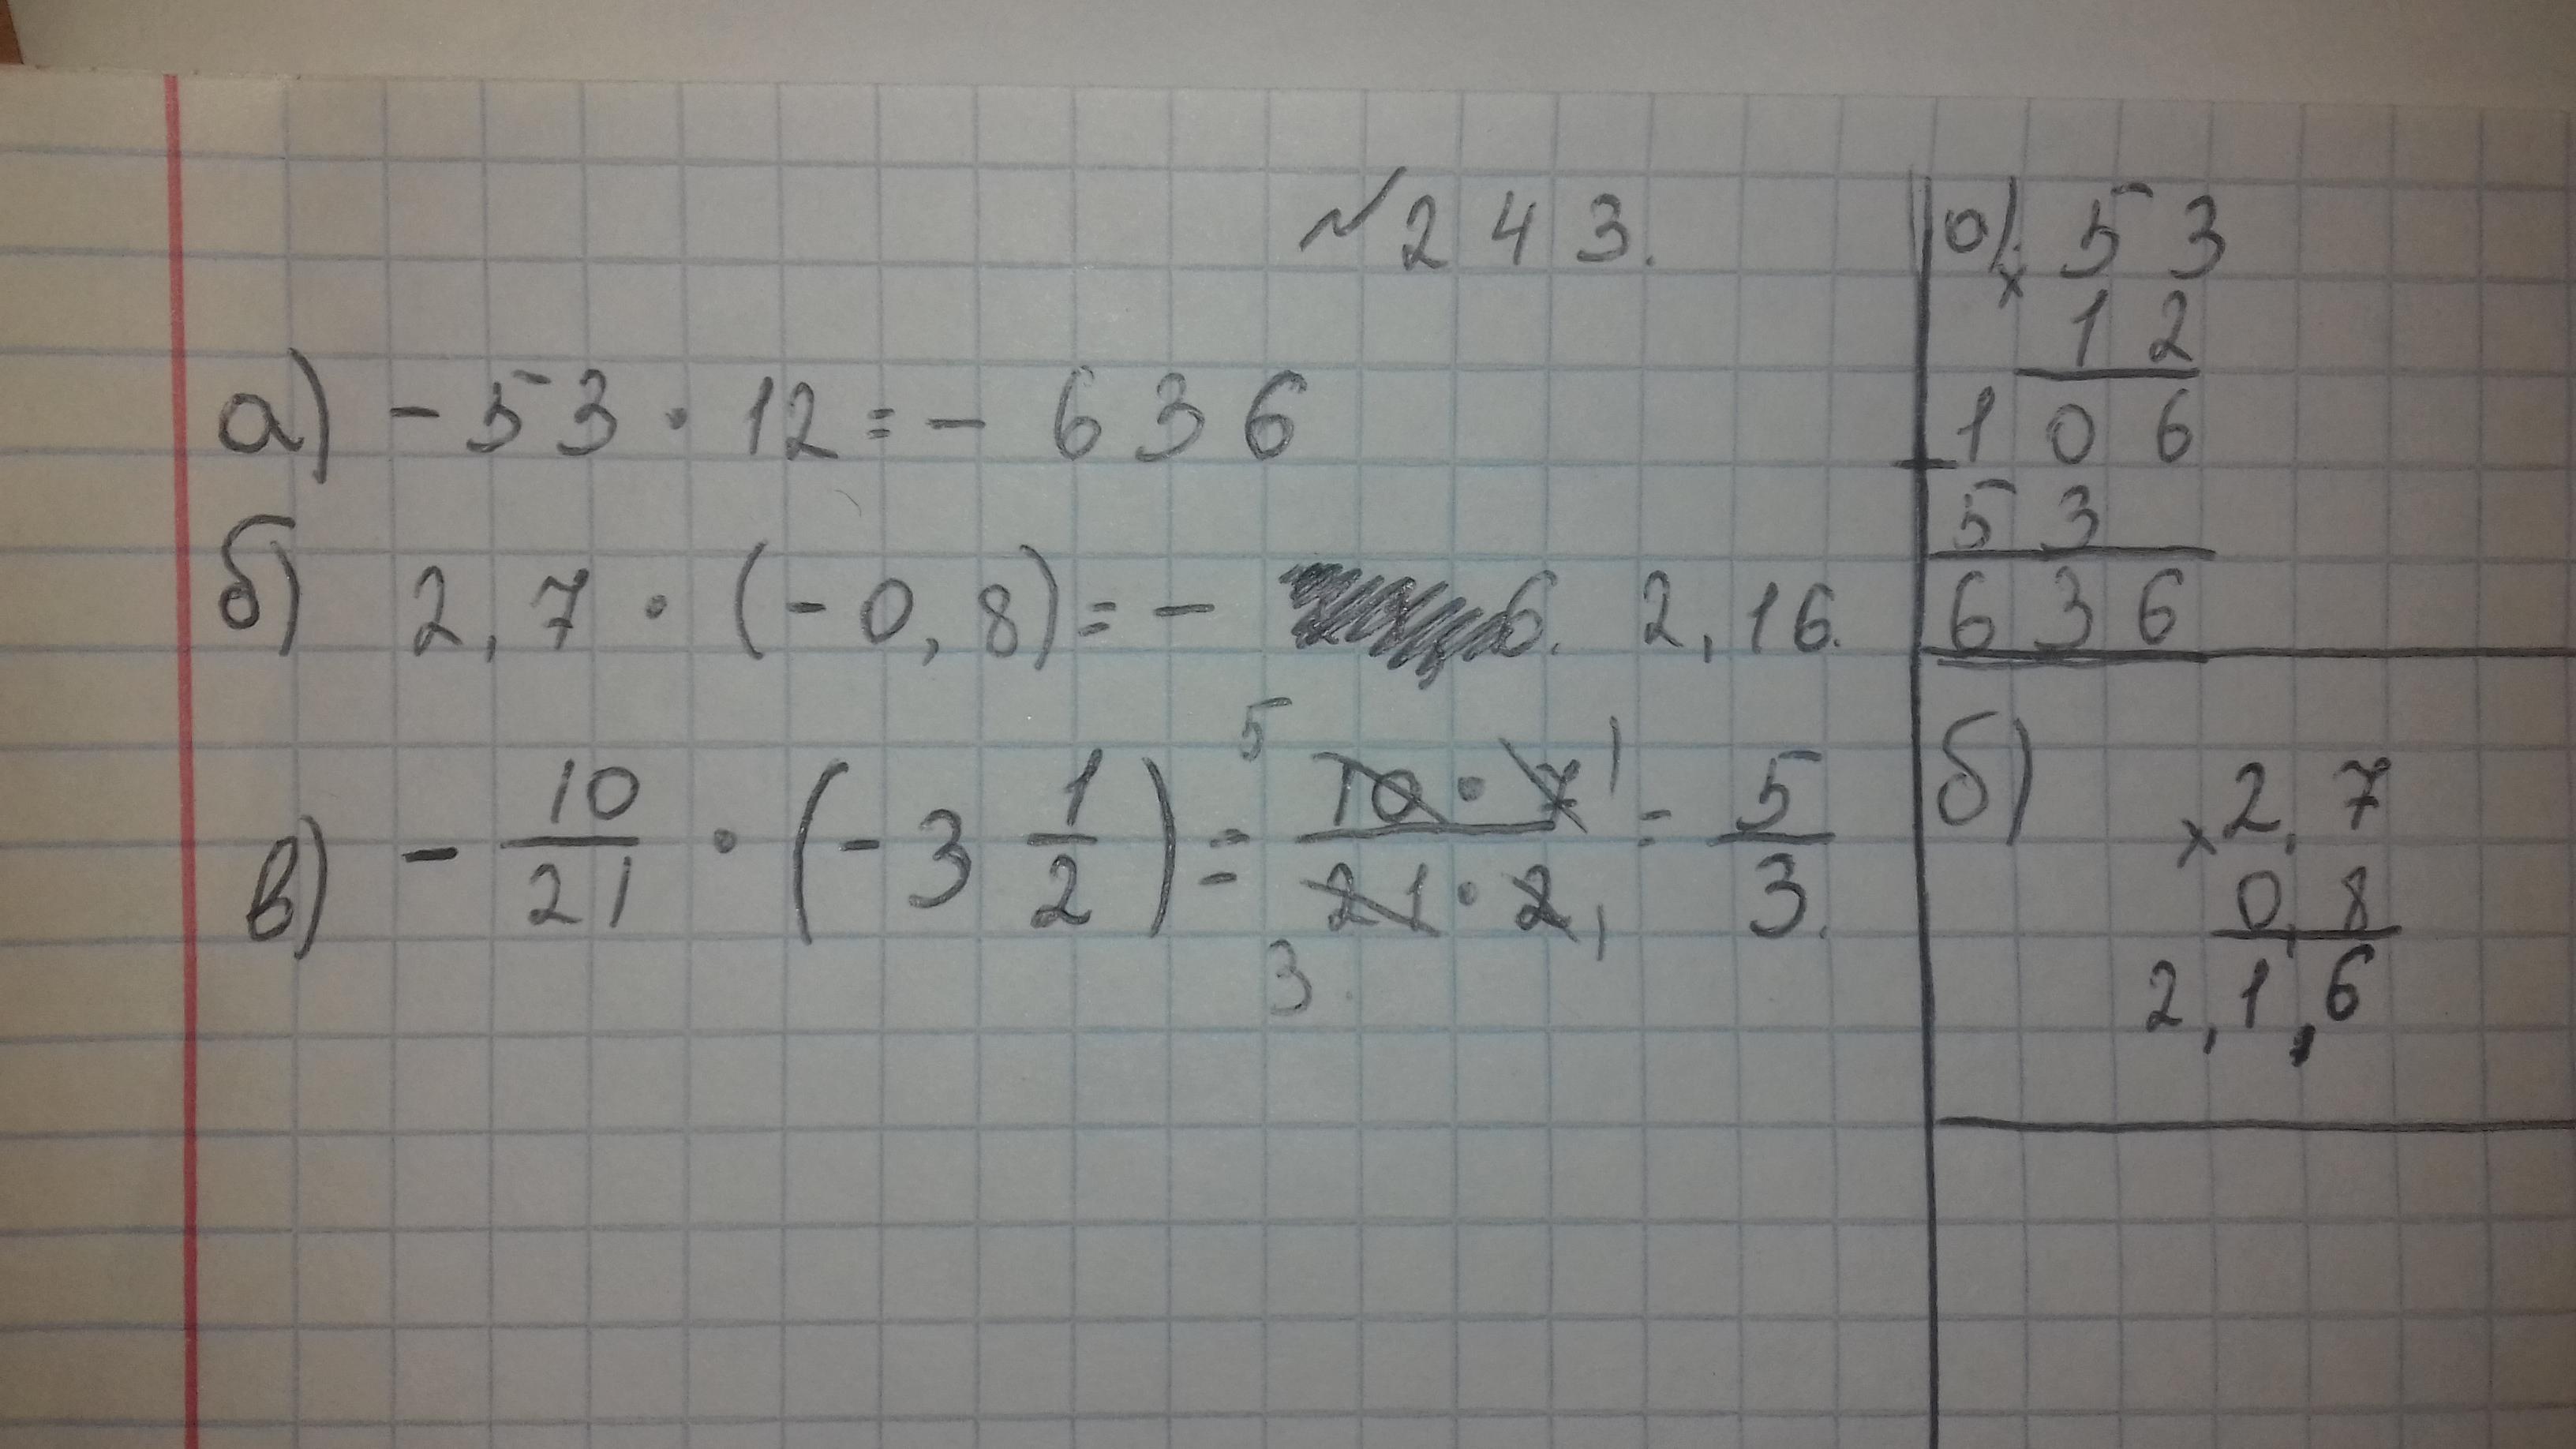 № 243.
а) - 53 · 12 = - 636
б) 2,7 · (- 0,8) = - 6. 2,16.
5 1
в) - 10/21 · (- 3 1/2) = 10 · 7 / 21 · 2 = 5/3.
3. 1
а) 53
× 12
106
+
53
636
б)
× 2,7
0,8
2,1,6